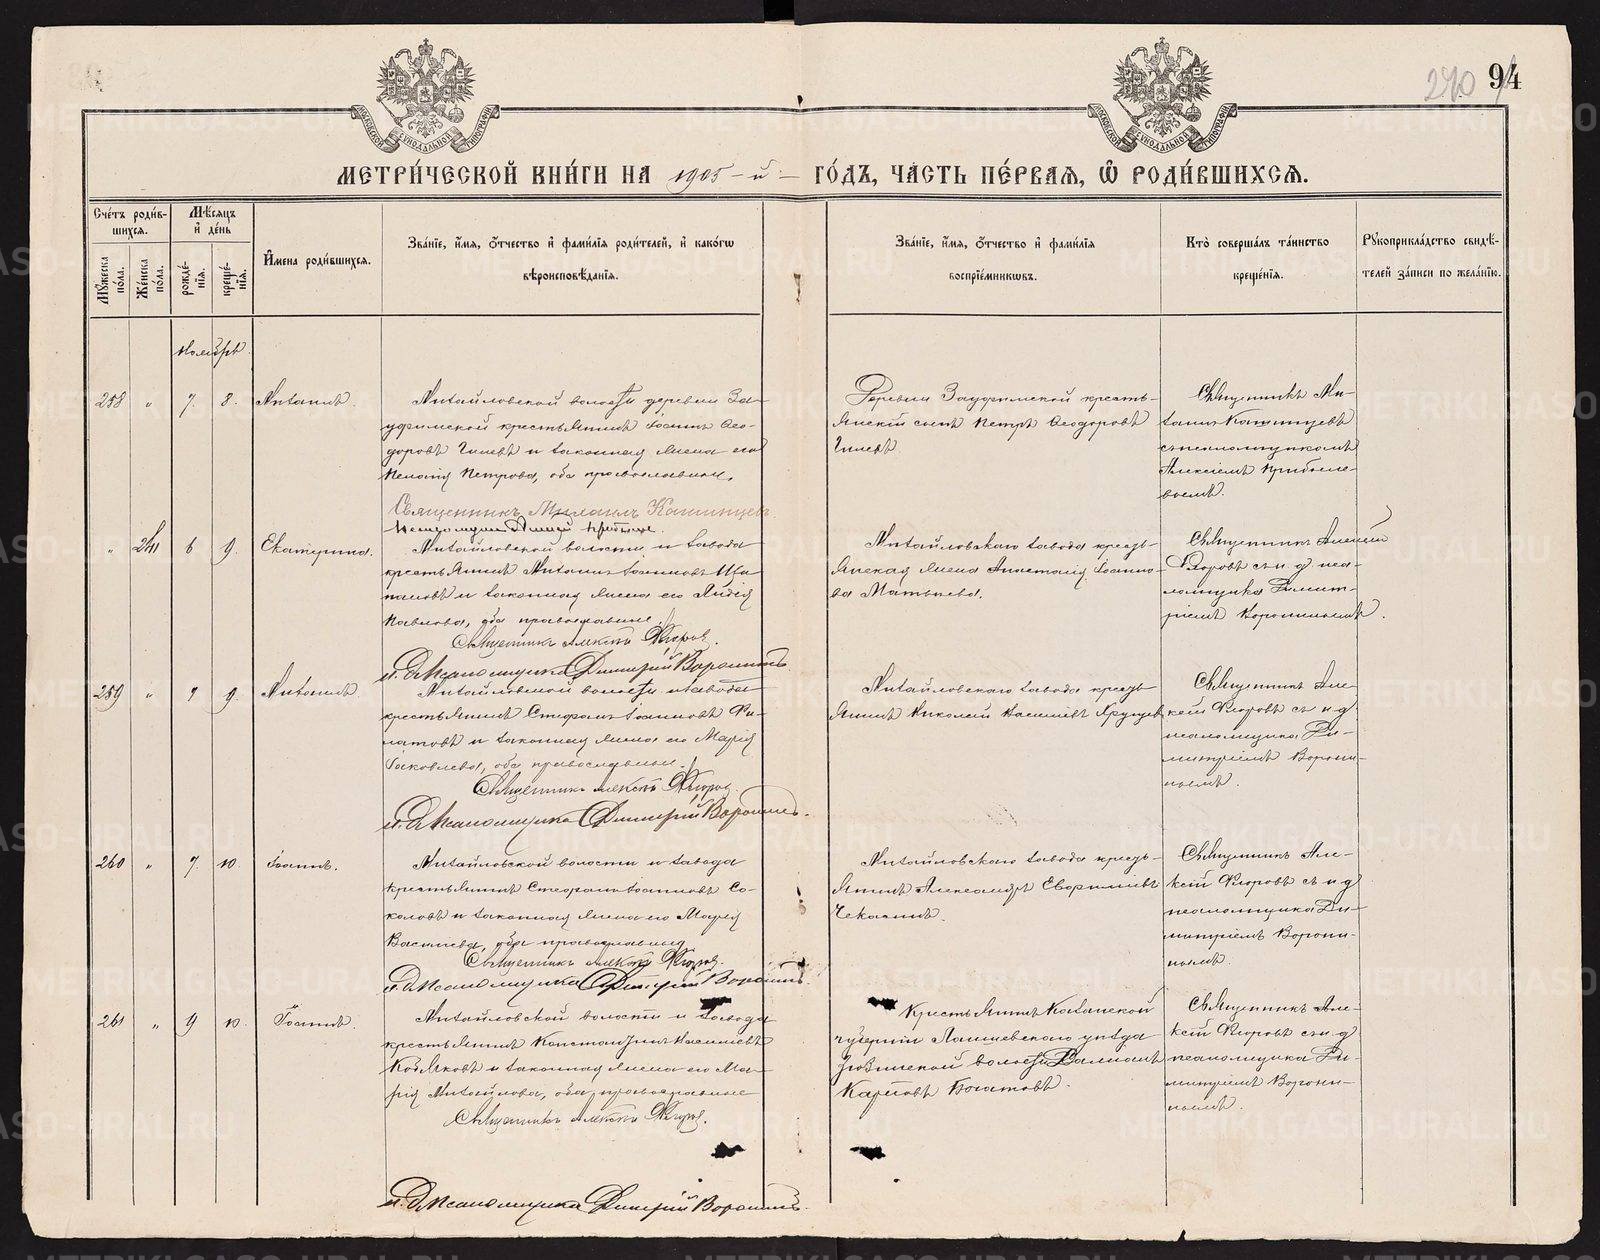 270 94
МЕТРИ́ЧЕСКОЙ КНИ́ГИ НА 1905-й ГО́ДЪ, ЧА́СТЬ ПЕ́РВАЯ, Ѿ РОДИ́ВШИХСѦ.
Сче́тъ роди́в-
шихсѧ.
Мꙋ́жеска по́ла.
Же́нска по́ла.
Мѣ́сѧцъ и҆ де́нь
рожде́-
нїѧ.
креще́-
нїѧ.
И҆мена роди́вшихсѧ.
Зва́нїе, и҆́мѧ, ѻ҆́тчество и҆ фами́лїѧ роди́телей, и҆ како́гѡ
вѣроисповѣ́данїѧ.
Зва́нїе, и҆́мѧ, ѻ҆́тчество и҆ фами́лїѧ
воспрїе́мникѡвъ.
Кто̀ соверша́лъ та́инство
креще́нїѧ.
Рꙋкоприкла́дство свидѣ́-
телей за́писи по жела́нїю.
Ноябрь
258 " 7. 8. Михаилъ.
Михайловской волости деревни За-
уфимской крестьянинъ Іоаннъ Ѳео-
доровъ Чилевъ и законная жена его
Пелагія Петрова, оба православные.
Священникъ Михаилъ Кашинцевъ.
Деревни Зауфимской кресть-
янскій сынъ Петръ Ѳеодоровъ
Чилевъ.
Священникъ Ми-
хаилъ Кашинцевъ
съ псаломщикомъ
Алексіемъ
" 241 6 9. Екатерина.
Михайловской волости и завода
крестьянинъ Михаилъ Іоанновъ
и законная жена его Лидія
Павлова, оба православные.
Священникъ Алексій Флоровъ.
и. д. Псаломщика Димитрій Воронинъ
Михайловскаго завода кресть-
янская жена Анастасія Іоанно-
ва Матвѣева.
Священникъ Алексій
Флоровъ съ и. д. пса-
ломщика Димит-
ріемъ Воронинымъ.
259 " 7 9. Михаилъ.
Михайловской волости и завода
крестьянинъ Стефанъ Іоанновъ Фи-
латовъ и законная жена его Марія
Іаковлева, оба православные.
Священникъ Алексій Флоровъ.
и. д. Псаломщика Димитрій Воронинъ.
Михайловскаго завода кресть-
янинъ Николай Василіевъ
Священникъ Але-
ксій Флоровъ съ и. д.
псаломщика Ди-
митріемъ Ворони-
нымъ.
260 " 7. 10. Іоаннъ.
Михайловской волости и завода
крестьянинъ Стефанъ Іоанновъ Со-
коловъ и законная жена его Марія
Василіева, оба православные.
Священникъ Алексій Флоровъ.
и. д. Псаломщика Димитрій Воронинъ.
Михайловскаго завода кресть-
янинъ Александръ Евфиміевъ
Чекасинъ.
Священникъ Але-
ксій Флоровъ съ и. д.
псаломщика Ди-
митріемъ Ворони-
нымъ.
261 " 9 10. Іоаннъ.
Михайловской волости и завода
крестьянинъ Константинъ Василіевъ
и законная жена его Ма-
рія Михайлова, оба православные
Священникъ Алексій Флоровъ.
и. д. Псаломщика Димитрій Воронинъ.
Крестьянинъ Казанской
губерніи Лаишевскаго уѣзда
волости
Карповъ Богатовъ.
Священникъ Але-
ксій Флоровъ съ и. д.
псаломщика Ди-
митріемъ Ворони-
нымъ.
METRIKI.GASO-URAL.RU